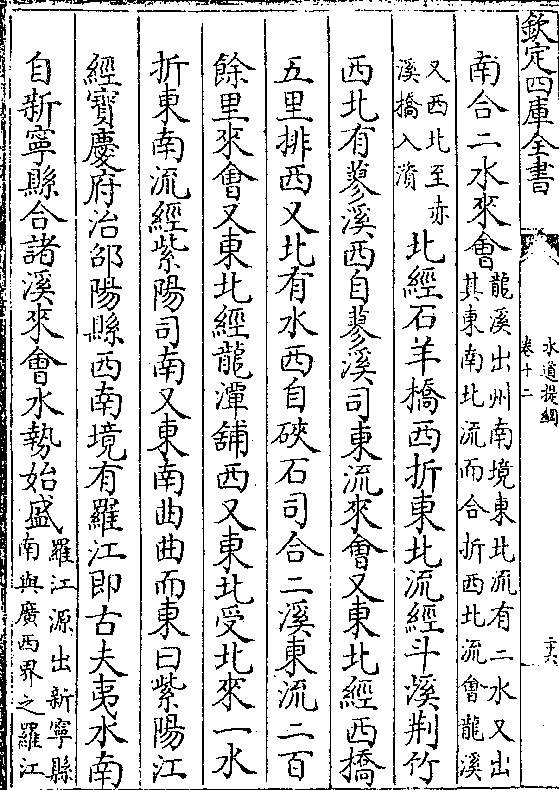 欽定四庫全書
水道提綱
卷十二
二十六
南合二水來會龍溪出州南境東北流有二水又出
其東南北流而合折西北流會龍溪
又西北至赤
溪橋入濱北經石羊橋西折東北流經斗溪荆竹
西北有蓼溪西自蓼溪司東流來會又東北經西橋
五里排西又北有水西自硤石司合二溪東流二百
餘里來會又東北經龍潭舖西又東北受北來一水
折東南流經紫陽司南又東南曲曲而東曰紫陽江
經寶慶府治邵陽縣西南境有羅江即古夫夷水南
自新寧縣合諸溪來會水勢始盛羅江源出新寧縣
南與廣西界之羅江